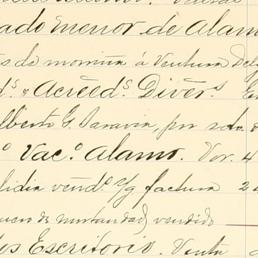 ado menor de Alamo
s de morniña á Ventura Del
ds. & Acreeds. Divers.
Alberto G. Saravia, por
o Vaco. Alamo. Vor. 4
lidia vendt. s/g factura 2
cueros de mortandad vendido
os Escritorio. Venta